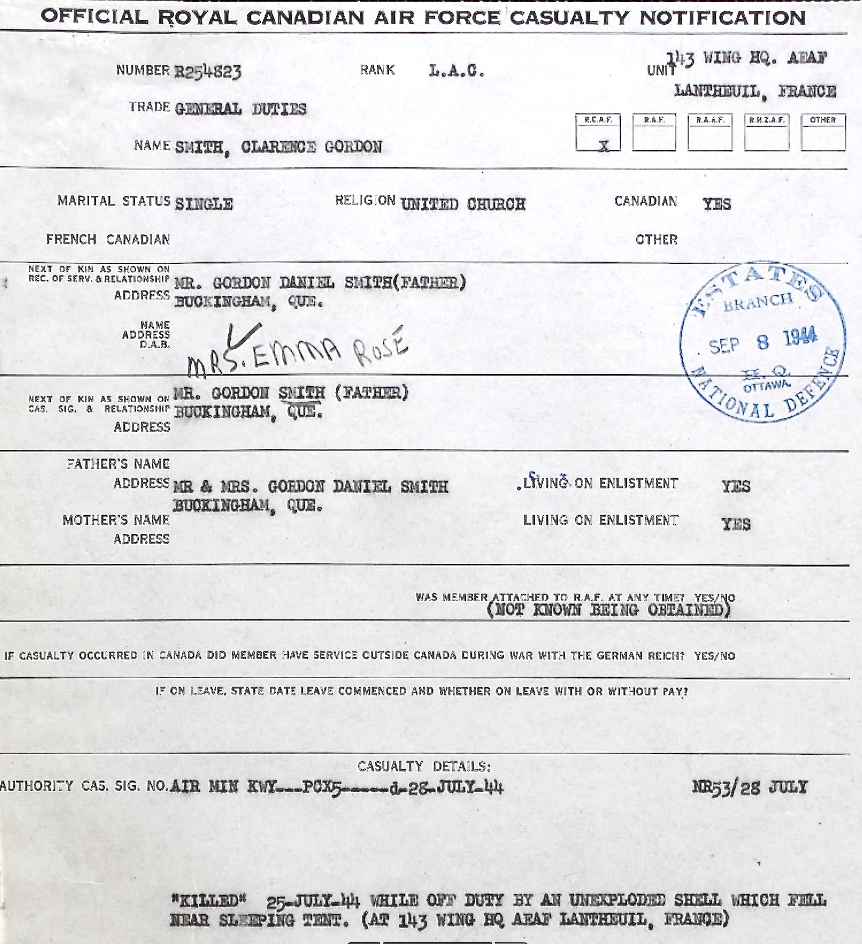 OFFICIAL ROYAL CANADIAN AIR FORCE CASUALTY NOTIFICATION
NUMBER R254823 RANK L.A.C. UNIT 143 WING HQ. AEAF
LANTHEUIL, FRANCE
TRADE GENERAL DUTIES
R.C.A.F. R.A.F. R.A.A.F. R.N.Z.A.F. OTHER
NAME SMITH, CLARENCE GORDON X
MARITAL STATUS SINGLE RELIGION UNITED CHURCH CANADIAN YES
FRENCH CANADIAN OTHER
NEXT OF KIN AS SHOWN ON
REC. OF SERV. & RELATIONSHIP MR. GORDON DANIEL SMITH(FATHER)
ADDRESS BUCKINGHAM, QUE.
NAME
ADDRESS
D.A.B.
MRS. EMMA ROSE
ESTATES
BRANCH
SEP 8 1944
H. Q.
OTTAWA.
NATIONAL DEFENCE
NEXT OF KIN AS SHOWN ON MR. GORDON SMITH (FATHER)
CAS. SIG. & RELATIONSHIP BUCKINGHAM, QUE.
ADDRESS
FATHER'S NAME
ADDRESS MR & MRS. GORDON DANIEL SMITH LIVING ON ENLISTMENT YES
BUCKINGHAM, QUE.
MOTHER'S NAME LIVING ON ENLISTMENT YES
ADDRESS
WAS MEMBER ATTACHED TO R.A.F. AT ANY TIME? YES/NO
(NOT KNOWN BEING OBTAINED)
IF CASUALTY OCCURRED IN CANADA DID MEMBER HAVE SERVICE OUTSIDE CANADA DURING WAR WITH THE GERMAN REICH? YES/NO
IF ON LEAVE, STATE DATE LEAVE COMMENCED AND WHETHER ON LEAVE WITH OR WITHOUT PAY?
CASUALTY DETAILS:
AUTHORITY CAS. SIG. NO. AIR MIN KWY---PCX5-----d-28-JULY-44 NR53/28 JULY
"KILLED" 25-JULY-44 WHILE OFF DUTY BY AN UNEXPLODED SHELL WHICH FELL
NEAR SLEEPING TENT. (AT 143 WING HQ AEAF LANTHEUIL, FRANCE)